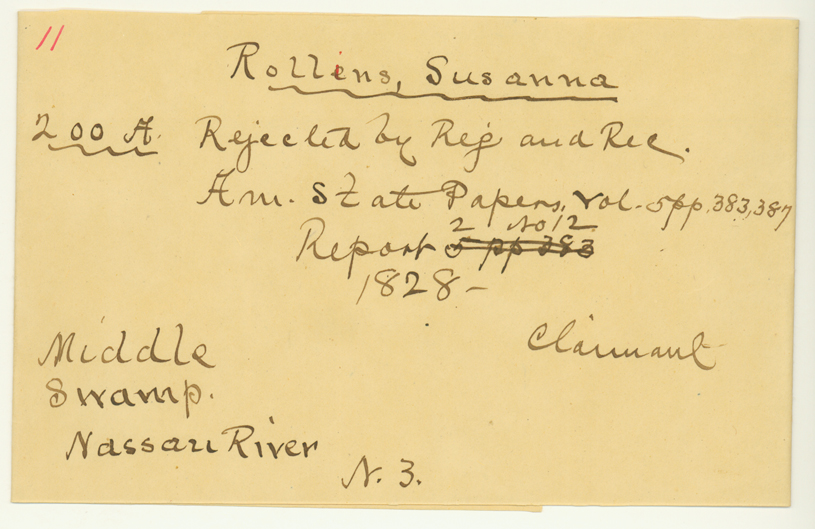 11
Rollins, Susanna
200 A. Rejected by Reg and Rec.
Am. State Papers, Vol. 5 pp. 383, 387
2 No 12
Report 5 pp 383
1828-
Claimant
Middle
Swamp.
Nassau River
N. 3.